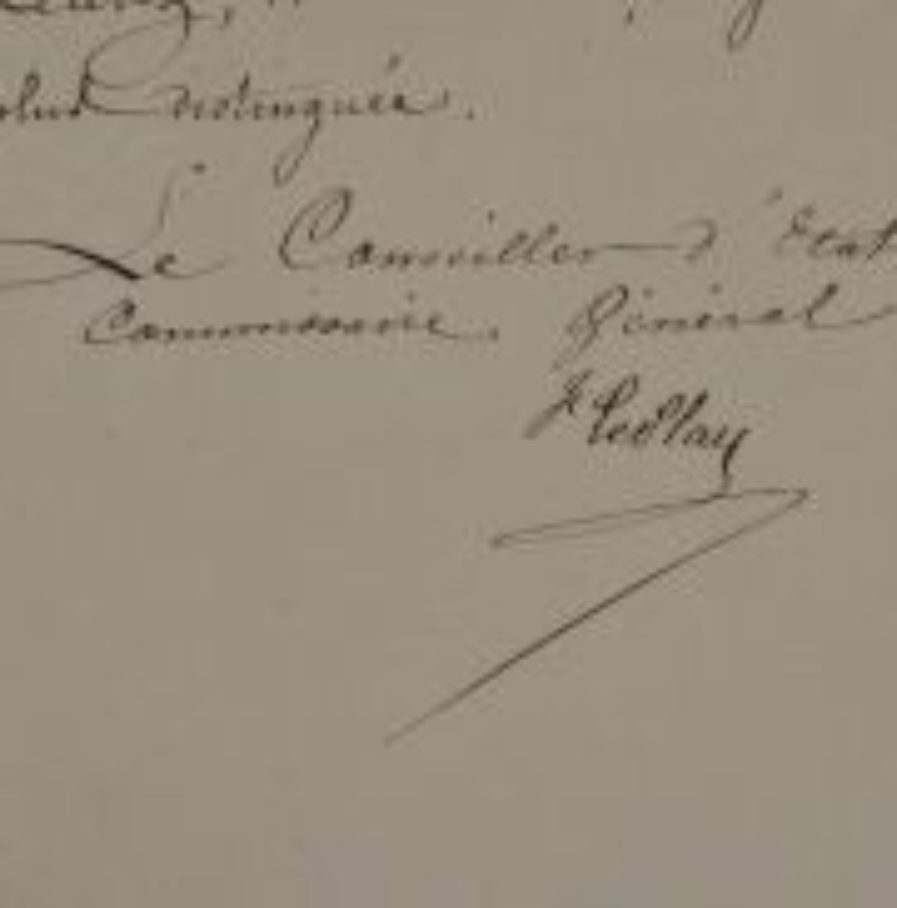 plus distingués.
Le Conseiller d'État
Commissaire Général
F Le Play